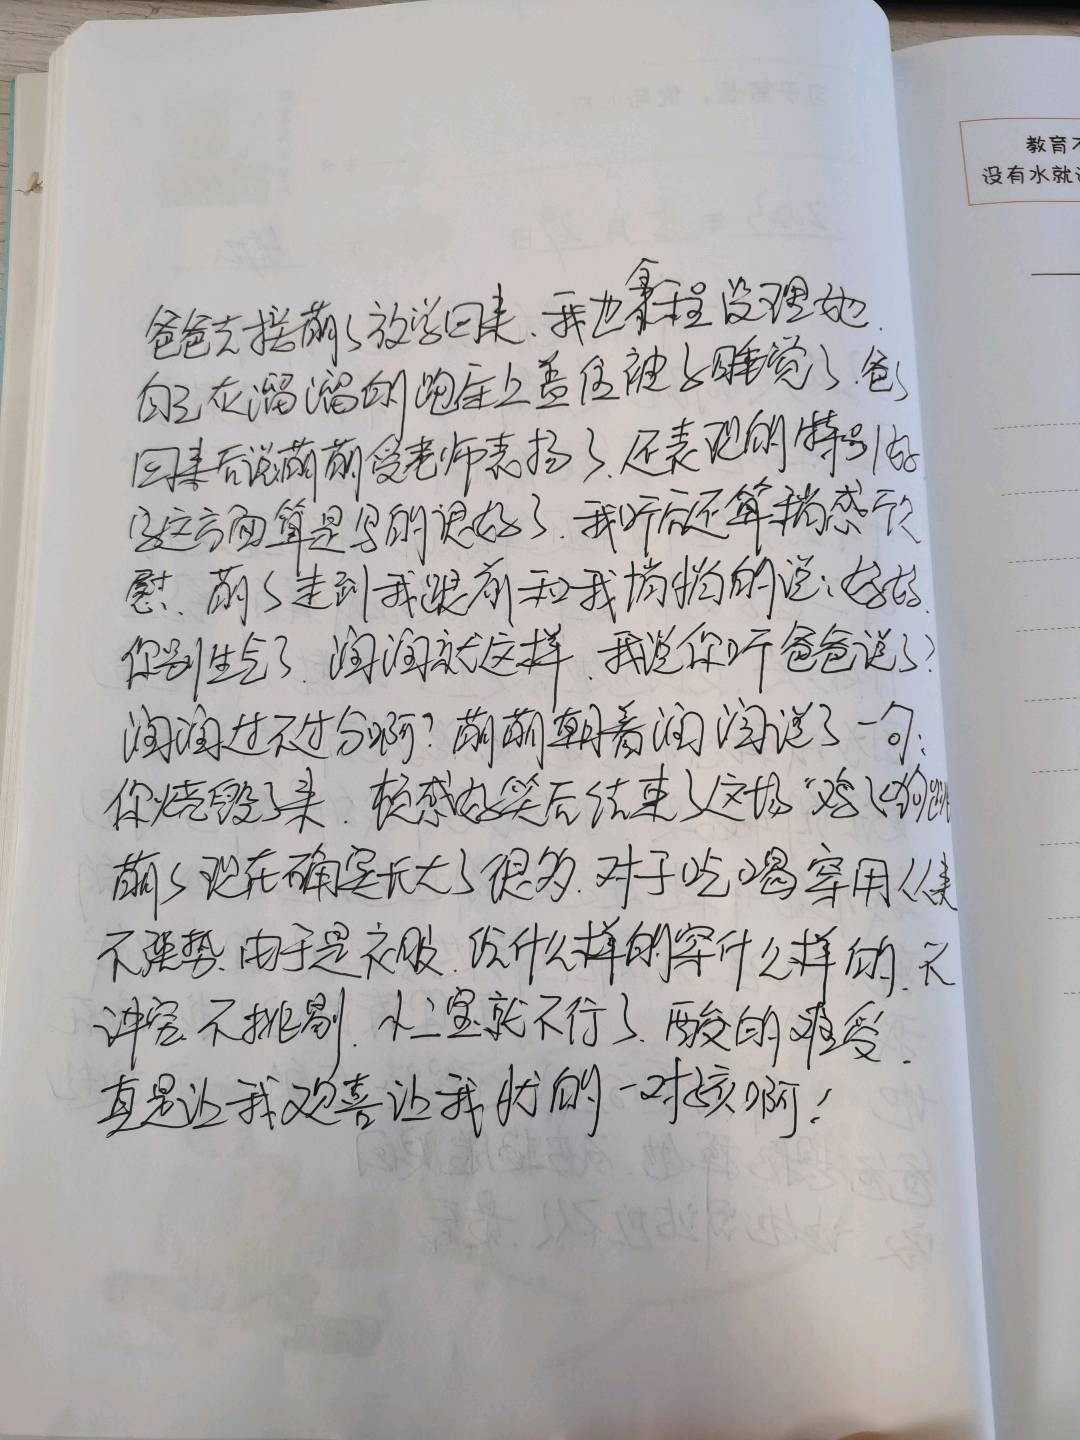 教育不
没有水就
爸爸去接萌々放学回来、我也全程没理她、
自己在溜溜的跑车上盖住被子睡觉了、爸々
回来后说萌萌受老师表扬了、还表现的特别好
这方面算是写的很好了、我听后还算稍感欣
慰、萌々走到我跟前和我悄悄的说：妈妈、
你别生气了、润润就这样、我说你听爸爸说了？
润润过不过分啊？萌萌朝着润润说了一句：
你烧毁了来、顿感好笑后结束了这场“鸡飞狗跳
萌々现在确实长大了很多、对于吃喝穿用从来
不强势、由于是衣服、给什么样的穿什么样的、不
讲究不挑剔、小二宝就不行了、酸的难受、
真是让我欢喜让我忧的一对孩啊！